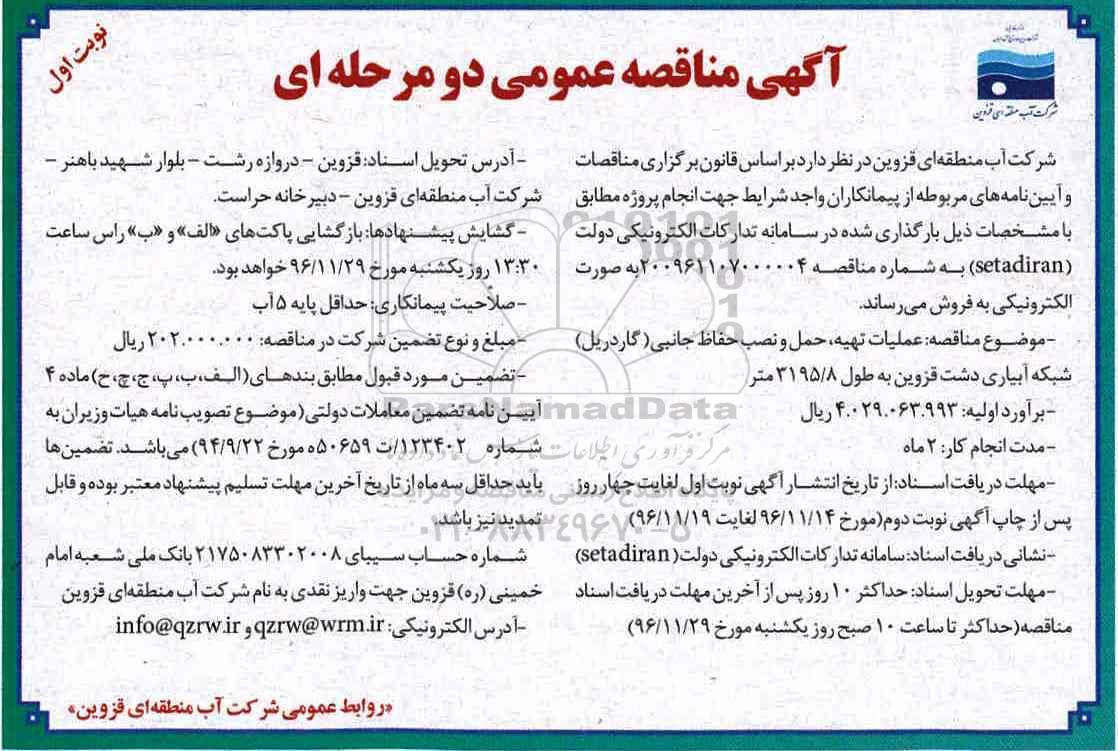 نوبت اول
آگهی مناقصه عمومی دو مرحله ای
شرکت آب منطقه ای قزوین
شرکت آب منطقه‌ای قزوین در نظر دارد بر اساس قانون برگزاری مناقصات
و آیین نامه‌های مربوطه از پیمانکاران واجد شرایط جهت انجام پروژه مطابق
با مشخصات ذیل بارگذاری شده در سامانه تدارکات الکترونیکی دولت
(setadiran) به شماره مناقصه ۲۰۰۹۶۱۱۰۷۰۰۰۰۰۴ به صورت
الکترونیکی به فروش می‌رساند.
-موضوع مناقصه: عملیات تهیه، حمل و نصب حفاظ جانبی( گاردریل)
شبکه آبیاری دشت قزوین به طول ۳۱۹۵/۸ متر
-برآورد اولیه: ۴.۰۲۹.۰۶۳.۹۹۳ ریال
-مدت انجام کار: ۲ ماه
-مهلت دریافت اسناد: از تاریخ انتشار آگهی نوبت اول لغایت چهار روز
پس از چاپ آگهی نوبت دوم(مورخ ۹۶/۱۱/۱۴ لغایت ۹۶/۱۱/۱۹)
-نشانی دریافت اسناد: سامانه تدارکات الکترونیکی دولت( setadiran)
-مهلت تحویل اسناد: حداکثر ۱۰ روز پس از آخرین مهلت دریافت اسناد
مناقصه(حداکثر تا ساعت ۱۰ صبح روز یکشنبه مورخ ۹۶/۱۱/۲۹)
-آدرس تحویل اسناد: قزوین – دروازه رشت – بلوار شهید باهنر –
شرکت آب منطقه‌ای قزوین – دبیرخانه حراست.
-گشایش پیشنهادها: بازگشایی پاکت‌های «الف» و «ب» راس ساعت
۱۳:۳۰ روز یکشنبه مورخ ۹۶/۱۱/۲۹ خواهد بود.
-صلاحیت پیمانکاری: حداقل پایه ۵ آب
-مبلغ و نوع تضمین شرکت در مناقصه: ۲۰۲.۰۰۰.۰۰۰ ریال
-تضمین مورد قبول مطابق بندهای(الف،ب،پ،ج،چ،ح) ماده ۴
آیین نامه تضمین معاملات دولتی(موضوع تصویب نامه هیات وزیران به
شماره ۱۲۳۴۰۲/ت ۵۰۶۵۹ه مورخ ۹۴/۹/۲۲) می‌باشد. تضمین‌ها
باید حداقل سه ماه از تاریخ آخرین مهلت تسلیم پیشنهاد معتبر بوده و قابل
تمدید نیز باشد.
شماره حساب سیبای ۲۱۷۵۰۸۳۳۰۲۰۰۸ بانک ملی شعبه امام
خمینی (ره) قزوین جهت واریز نقدی به نام شرکت آب منطقه‌ای قزوین
-آدرس الکترونیکی: qzrw@wrm.ir و info@qzrw.ir
«روابط عمومی شرکت آب منطقه‌ای قزوین»
ParsNamadData
۰۲۱-۸۸۳۴۹۶۷۰-۵